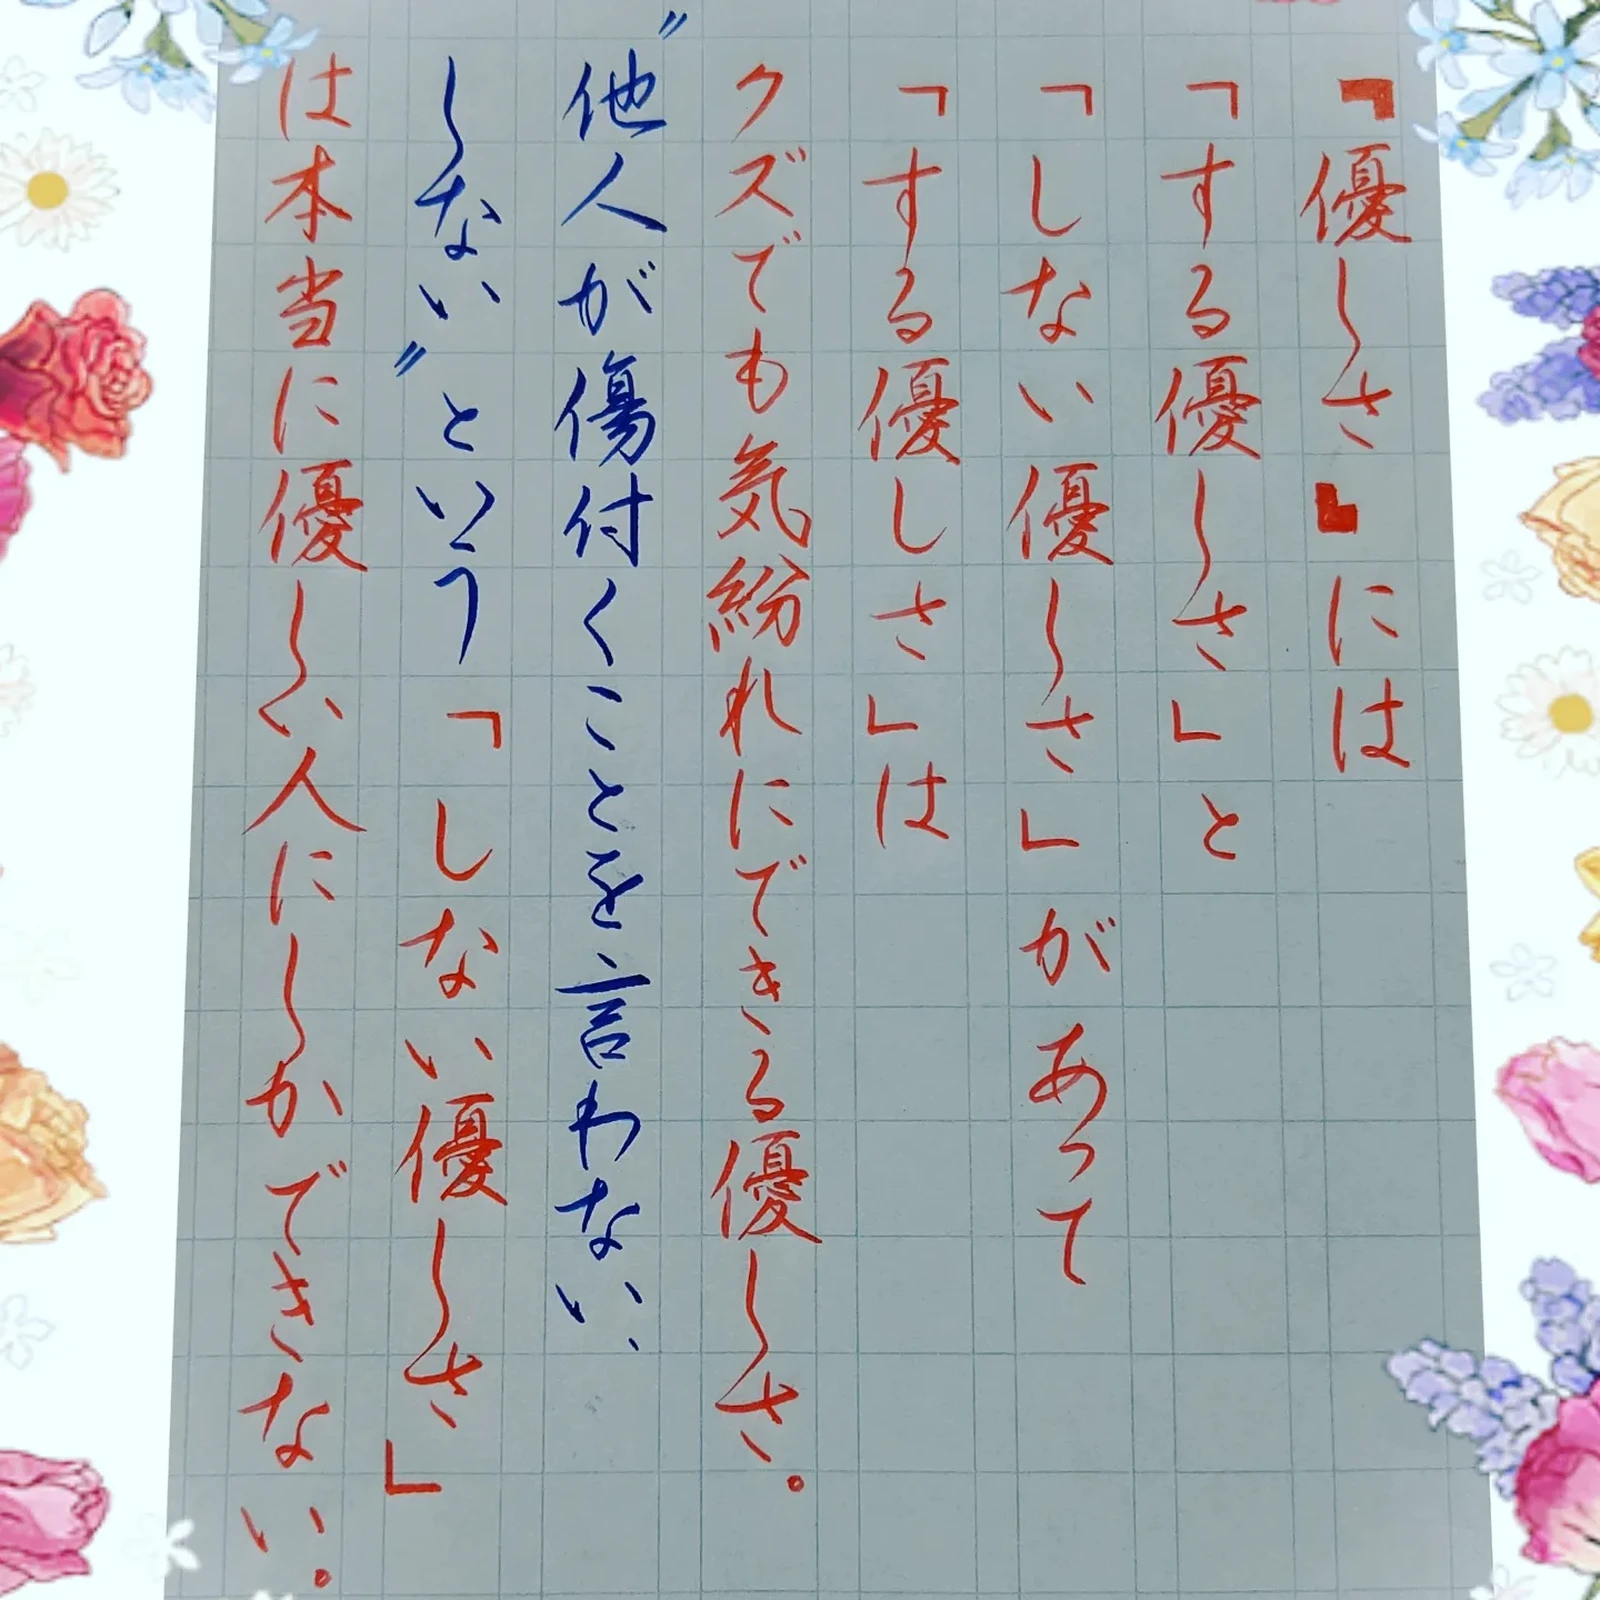 『優しさ』には
「する優しさ」と
「しない優しさ」があって
「する優しさ」は
クズでも気紛れにできる優しさ。
〝他人が傷付くことを言わない、
しない〟という「しない優しさ」
は本当に優しい人にしかできない。